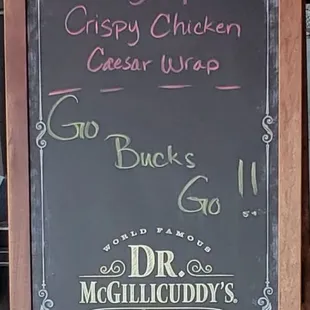 Crispy Chicken
Caesar Wrap
Go
Bucks
Go !!
WORLD FAMOUS
DR.
McGILLICUDDY'S.